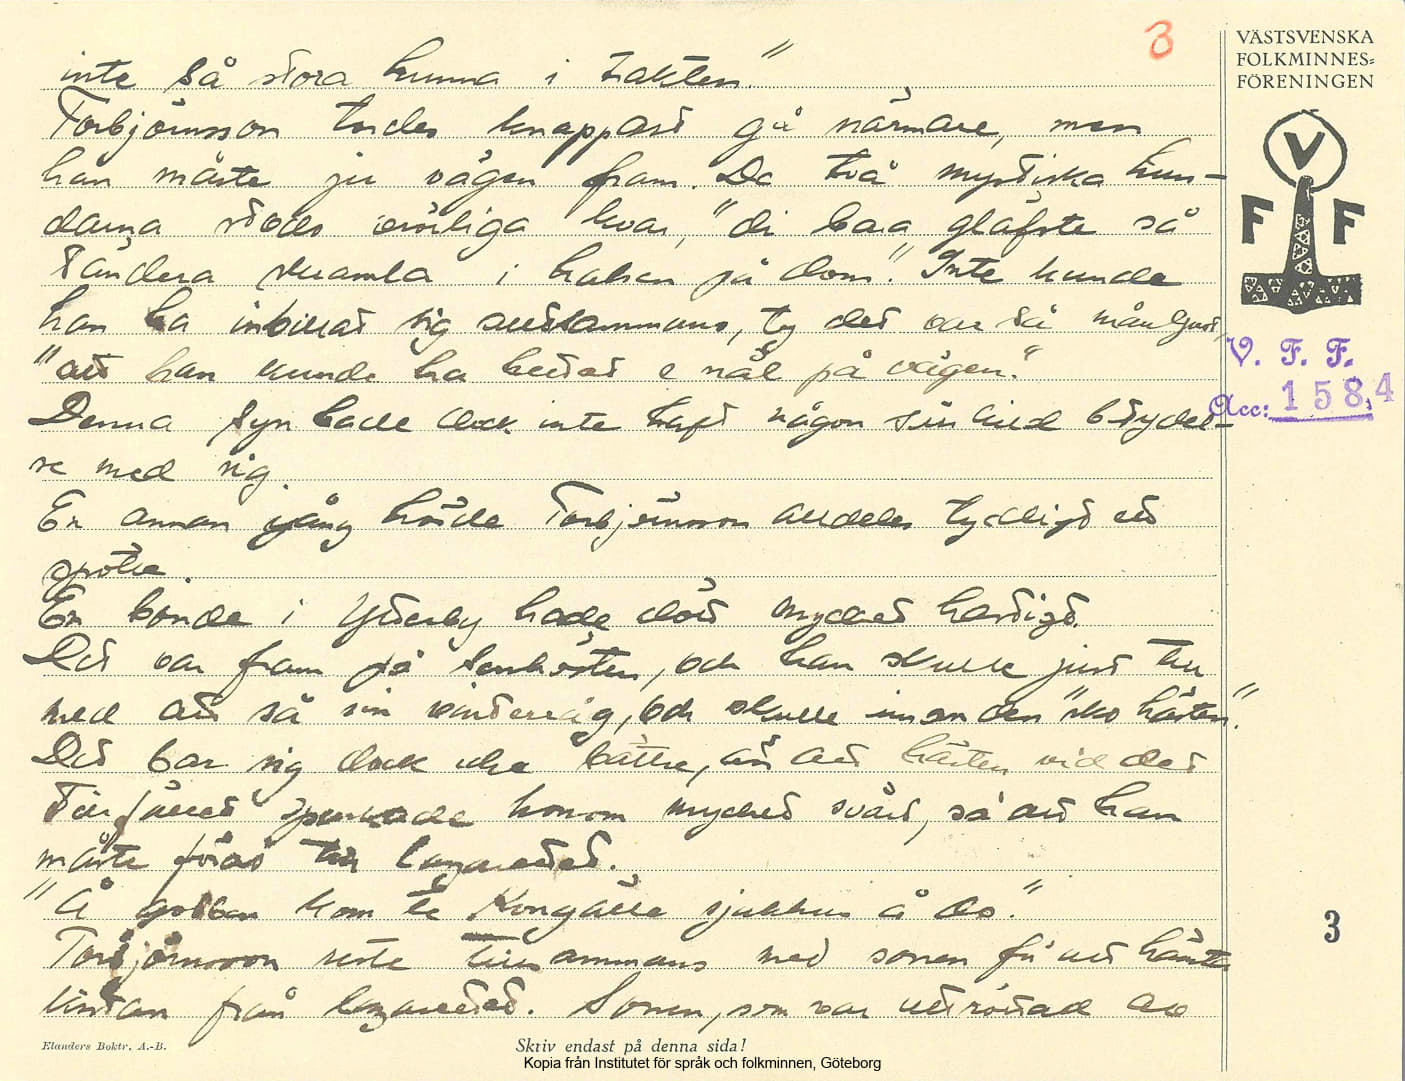 3
VÄSTSVENSKA
FOLKMINNES=
FÖRENINGEN
V
F F
V. F. F.
Acc: 1584
inte så stora hunna i trakten."
Torbjörnsson tordes knappast gå närmare, men
han måste ju vägen fram. De två mystiska hun-
darna stodo orörliga kvar, "di bara gläfste så
tändera skramla i halsen på dom." Inte kunde
han ha inbillat sig alltsammans, ty det var så månljust,
"att han kunde ha hettat e nål på vägen."
Denna syn hade dock inte haft någon särskild betydel-
se med sig.
En annan gång hörde Torbjörnsson alldeles tydligt ett
spöke.
En bonde i Ytterby hade dött mycket hastigt.
Det var fram på senhösten, och han skulle just till
med att så sin vinterråg, och skulle innan den "sko hästen."
Det bar sig dock icke bättre, än att hästen vid det
tillfället sparkade honom mycket svårt, så att han
måste föras till lazarettet.
"Å gubben kom te Kongälle sjukhus å do."
Torbjörnsson reste tillsammans med sonen för att hämta
kistan från lazarettet. Sonen, som var uttröttad av
3
Elanders Boktr. A.-B.
Skriv endast på denna sida!
Kopia från Institutet för språk och folkminnen, Göteborg